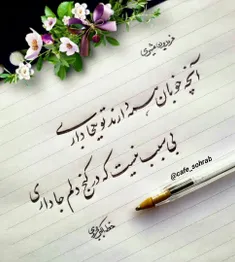 فریدون مشیری
آنچه خوبان همه دارند تو یکجا داری
بی سبب نیست که در کنج دلم جا داری
@cafe_sohrab